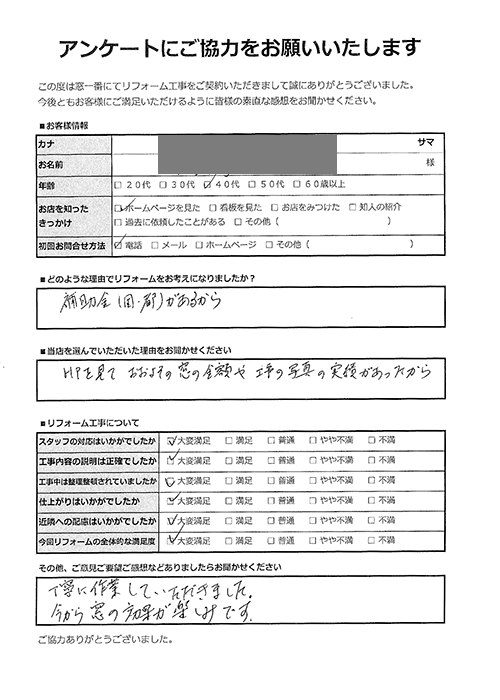 アンケートにご協力をお願いいたします
この度は窓一番にてリフォーム工事をご契約いただきまして誠にありがとうございました。
今後ともお客様にご満足いただけるように皆様の素直な感想をお聞かせください。
■お客様情報
カナ サマ
お名前 様
年齢 □20代 □30代 ☑40代 □50代 □60歳以上
お店を知ったきっかけ ☑ホームページを見た □看板を見た □お店をみつけた □知人の紹介
□過去に依頼したことがある □その他（ ）
初回お問合せ方法 ☑電話 □メール □ホームページ □その他（ ）
■どのような理由でリフォームをお考えになりましたか？
補助金（国・都）があるから
■当店を選んでいただいた理由をお聞かせください
HPを見て おおよその窓の金額や 工事の写真の実績があったから
■リフォーム工事について
スタッフの対応はいかがでしたか ☑大変満足 □満足 □普通 □やや不満 □不満
工事内容の説明は正確でしたか ☑大変満足 □満足 □普通 □やや不満 □不満
工事中は整理整頓されていましたか ☑大変満足 □満足 □普通 □やや不満 □不満
仕上がりはいかがでしたか ☑大変満足 □満足 □普通 □やや不満 □不満
近隣への配慮はいかがでしたか ☑大変満足 □満足 □普通 □やや不満 □不満
今回リフォームの全体的な満足度 ☑大変満足 □満足 □普通 □やや不満 □不満
その他、ご意見ご要望ご感想などありましたらお聞かせください
丁寧に作業していただきました。
今から窓の効果が楽しみです。
ご協力ありがとうございました。